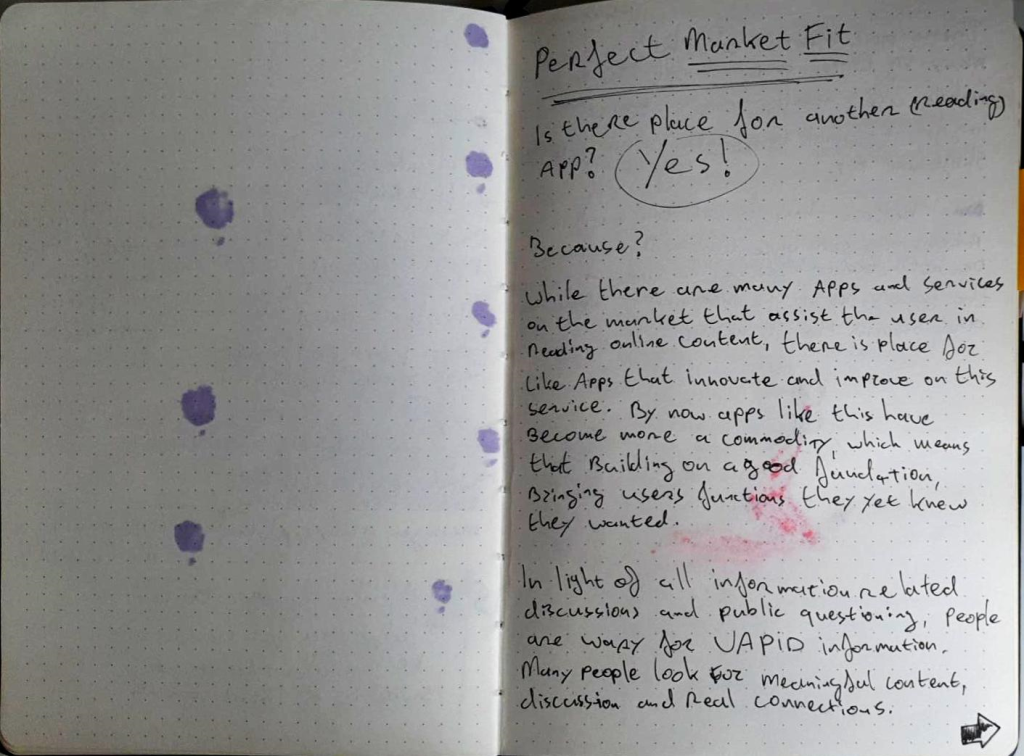 Perfect Market Fit
Is there place for another (reading)
App? Yes!
Because?
While there are many Apps and services
on the market that assist the user in
reading online content, there is place for
like Apps that innovate and improve on this
service. By now apps like this have
Become more a commodity, which means
that Building on a good fundation,
Bringing users functions they yet knew
they wanted.
In light of all information related
discussions and public questioning, people
are wary for VAPiD information.
Many people look for meaningful content,
discussion and Real connections.